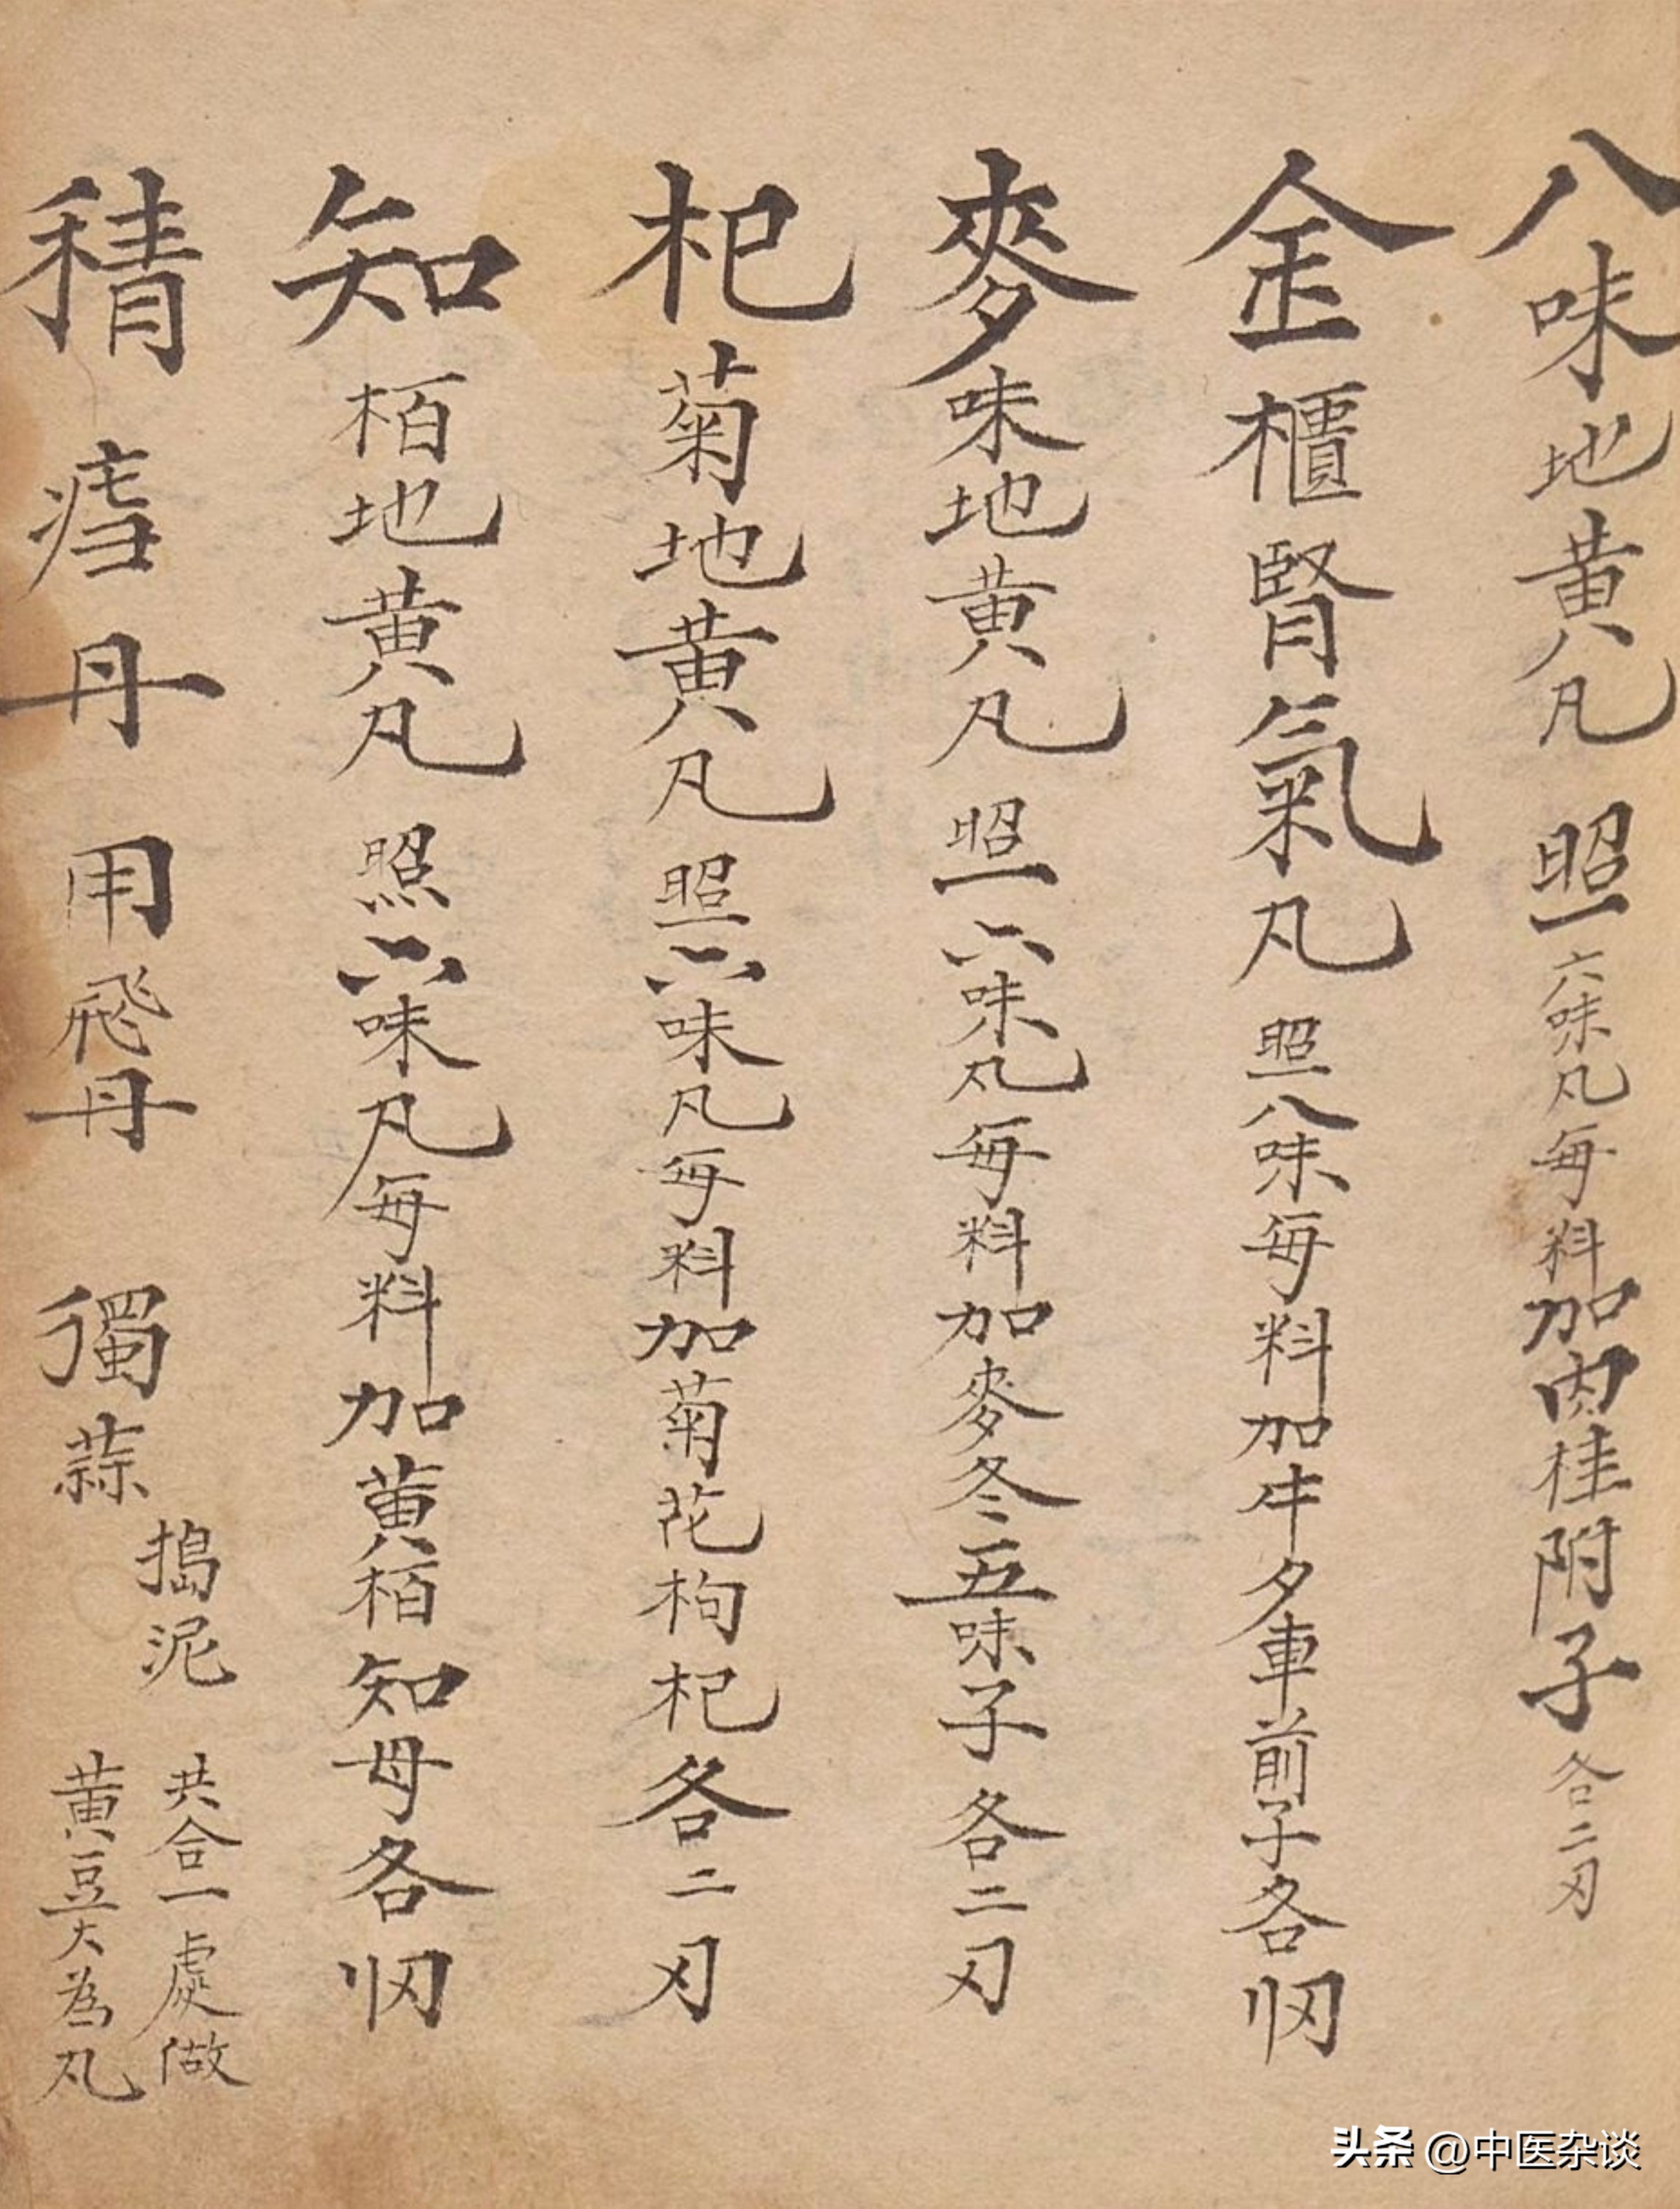 八味地黄凡 照六味凡每料加肉桂附子各二刃
金櫃腎氣凡 照八味每料加牛夕車前子各刅
麥味地黄凡 照六味凡每料加麥冬五味子各二刃
杞菊地黄凡 照六味凡每料加菊花枸杞各二刃
知栢地黄凡 照六味凡每料加黄栢知母各刅
丹 用飛丹 獨蒜 搗泥
共合一處做
黄豆大為丸
头条 @中医杂谈